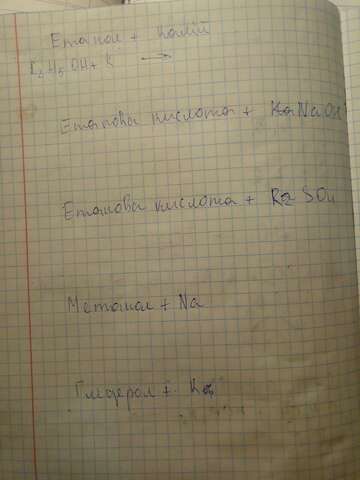 Етанол + Калій
C₂H₅OH + K →
Етанова кислота + NaOH
Етанова кислота + SO₄
Метанол + Na
Гліцерол + K